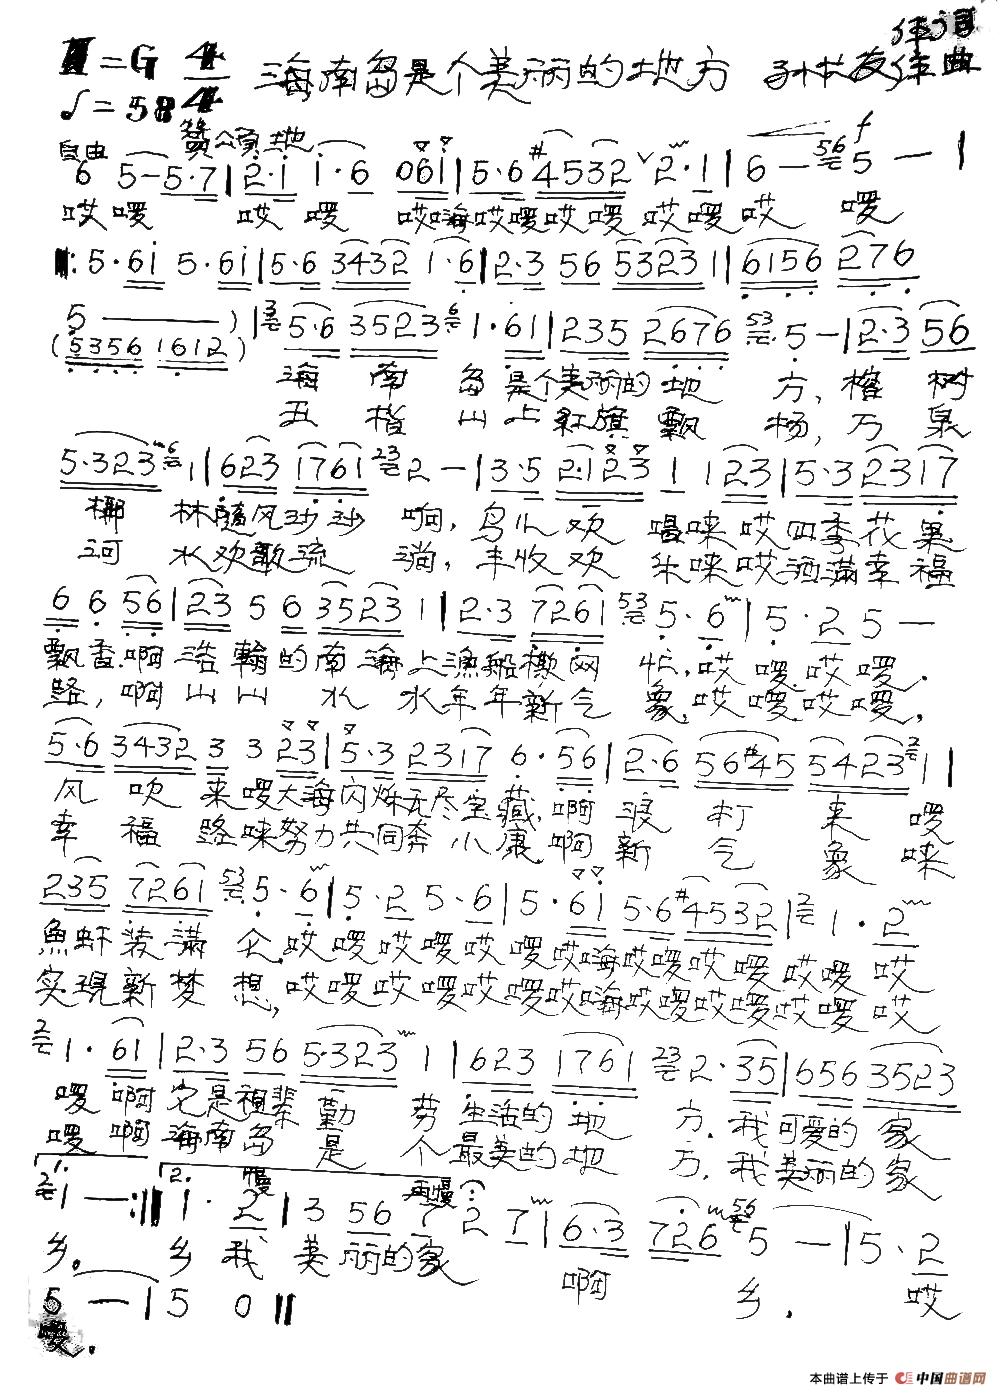 作词
1=G 4/4 海南岛是个美丽的地方 孙林发作曲
♩=58
自由 赞颂地
6 5-5·7|2·i i·6 06i|5·6 #4532 2·1|6- 56 5-|
哎啰 哎啰 哎嗨哎啰哎啰哎啰哎 啰
‖:5·6i 5·6i|5·6 3432 1·6|2·3 56 5323 1|6156 276
5————)|3 5·6 3523 6 1·61|235 2676 53 5-|2·3 56
(5356 1612)
海南岛是个美丽的地方,榕树
五指山上红旗飘扬,万泉
5·323 6 1|623 1761 23 2-|3·5 2·123 1 1 23|5·3 2317
椰林随风沙沙响,鸟儿欢唱唻哎四季花果
河水欢歌流淌,丰收欢乐唻哎洒满幸福
6 6 56|23 5 6 3523 1|2·3 7261 53 5·6|5·2 5-
飘香.啊浩瀚的南海上渔船撒网忙,哎啰,哎啰.
路,啊山山水水年年新气象,哎啰,哎啰,
5·6 3432 3 3 23|5·3 2317 6·56|2·6 56#45 5423 2 1|
风吹来啰大海闪烁无尽宝藏,啊浪打来啰
幸福路唻努力共同奔小康,啊新气象唻
235 7261 53 5·6|5·2 5·6|5·6i 5·6#4532|2 1·2
鱼虾装满仓,哎啰哎啰哎啰哎嗨哎啰哎啰哎啰哎
实现新梦想,哎啰哎啰哎啰哎嗨哎啰哎啰哎啰哎
2 1·61|2·3 56 5·323 1|623 1761 23 2·35|656 3523
啰啊它是祖辈勤劳生活的地方.我可爱的家
啰啊海南岛是个最美的地方.我美丽的家
1. 2. 慢 再慢
2 1-:‖1·2|3 56 7 2 7|6·3 726 56 5-|5·2
乡。 乡我美丽的家 啊 乡. 哎
5-|5 0‖
啰.
本曲谱上传于 中国曲谱网